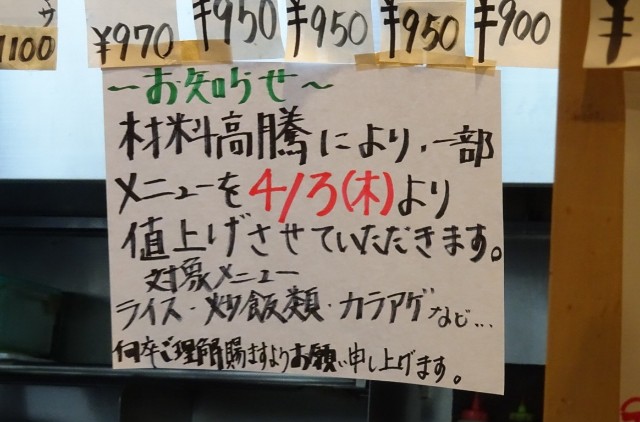 ¥1100
¥970
¥950
¥950
¥950
¥900
～お知らせ～
材料高騰により、一部
メニューを4/3(木)より
値上げさせていただきます。
対象メニュー
ライス・炒飯類・カラアゲなど...
何卒ご理解賜ますようお願い申し上げます。